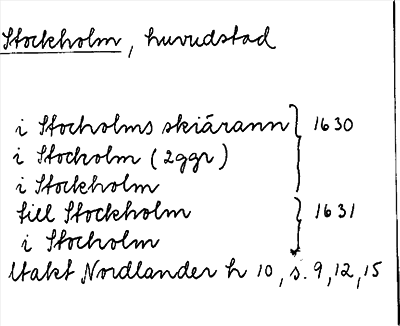 Stockholm, huvudstad
i Stocholms skiärann } 1630
i Stocholm (2ggr)
i Stockholm
till Stockholm } 1631
i Stocholm
Utakt Nordlander h 10, s. 9, 12, 15